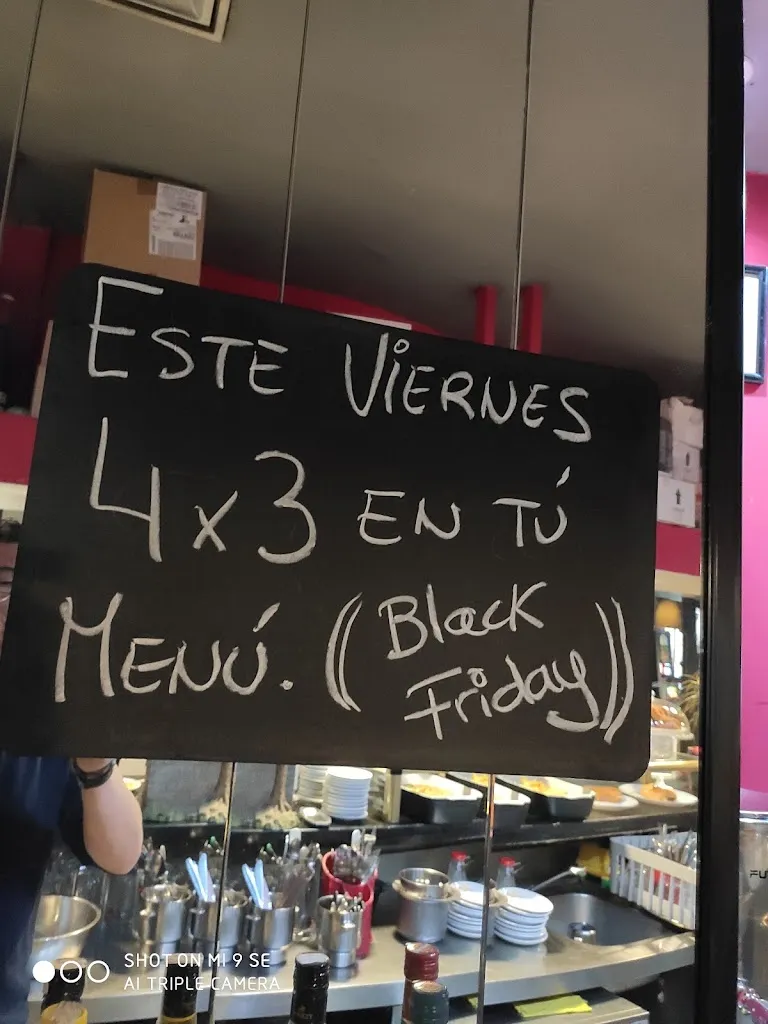 ESTE VIERNES
4x3 EN TÚ
MENÚ. ((Black
Friday))
SHOT ON MI 9 SE
AI TRIPLE CAMERA